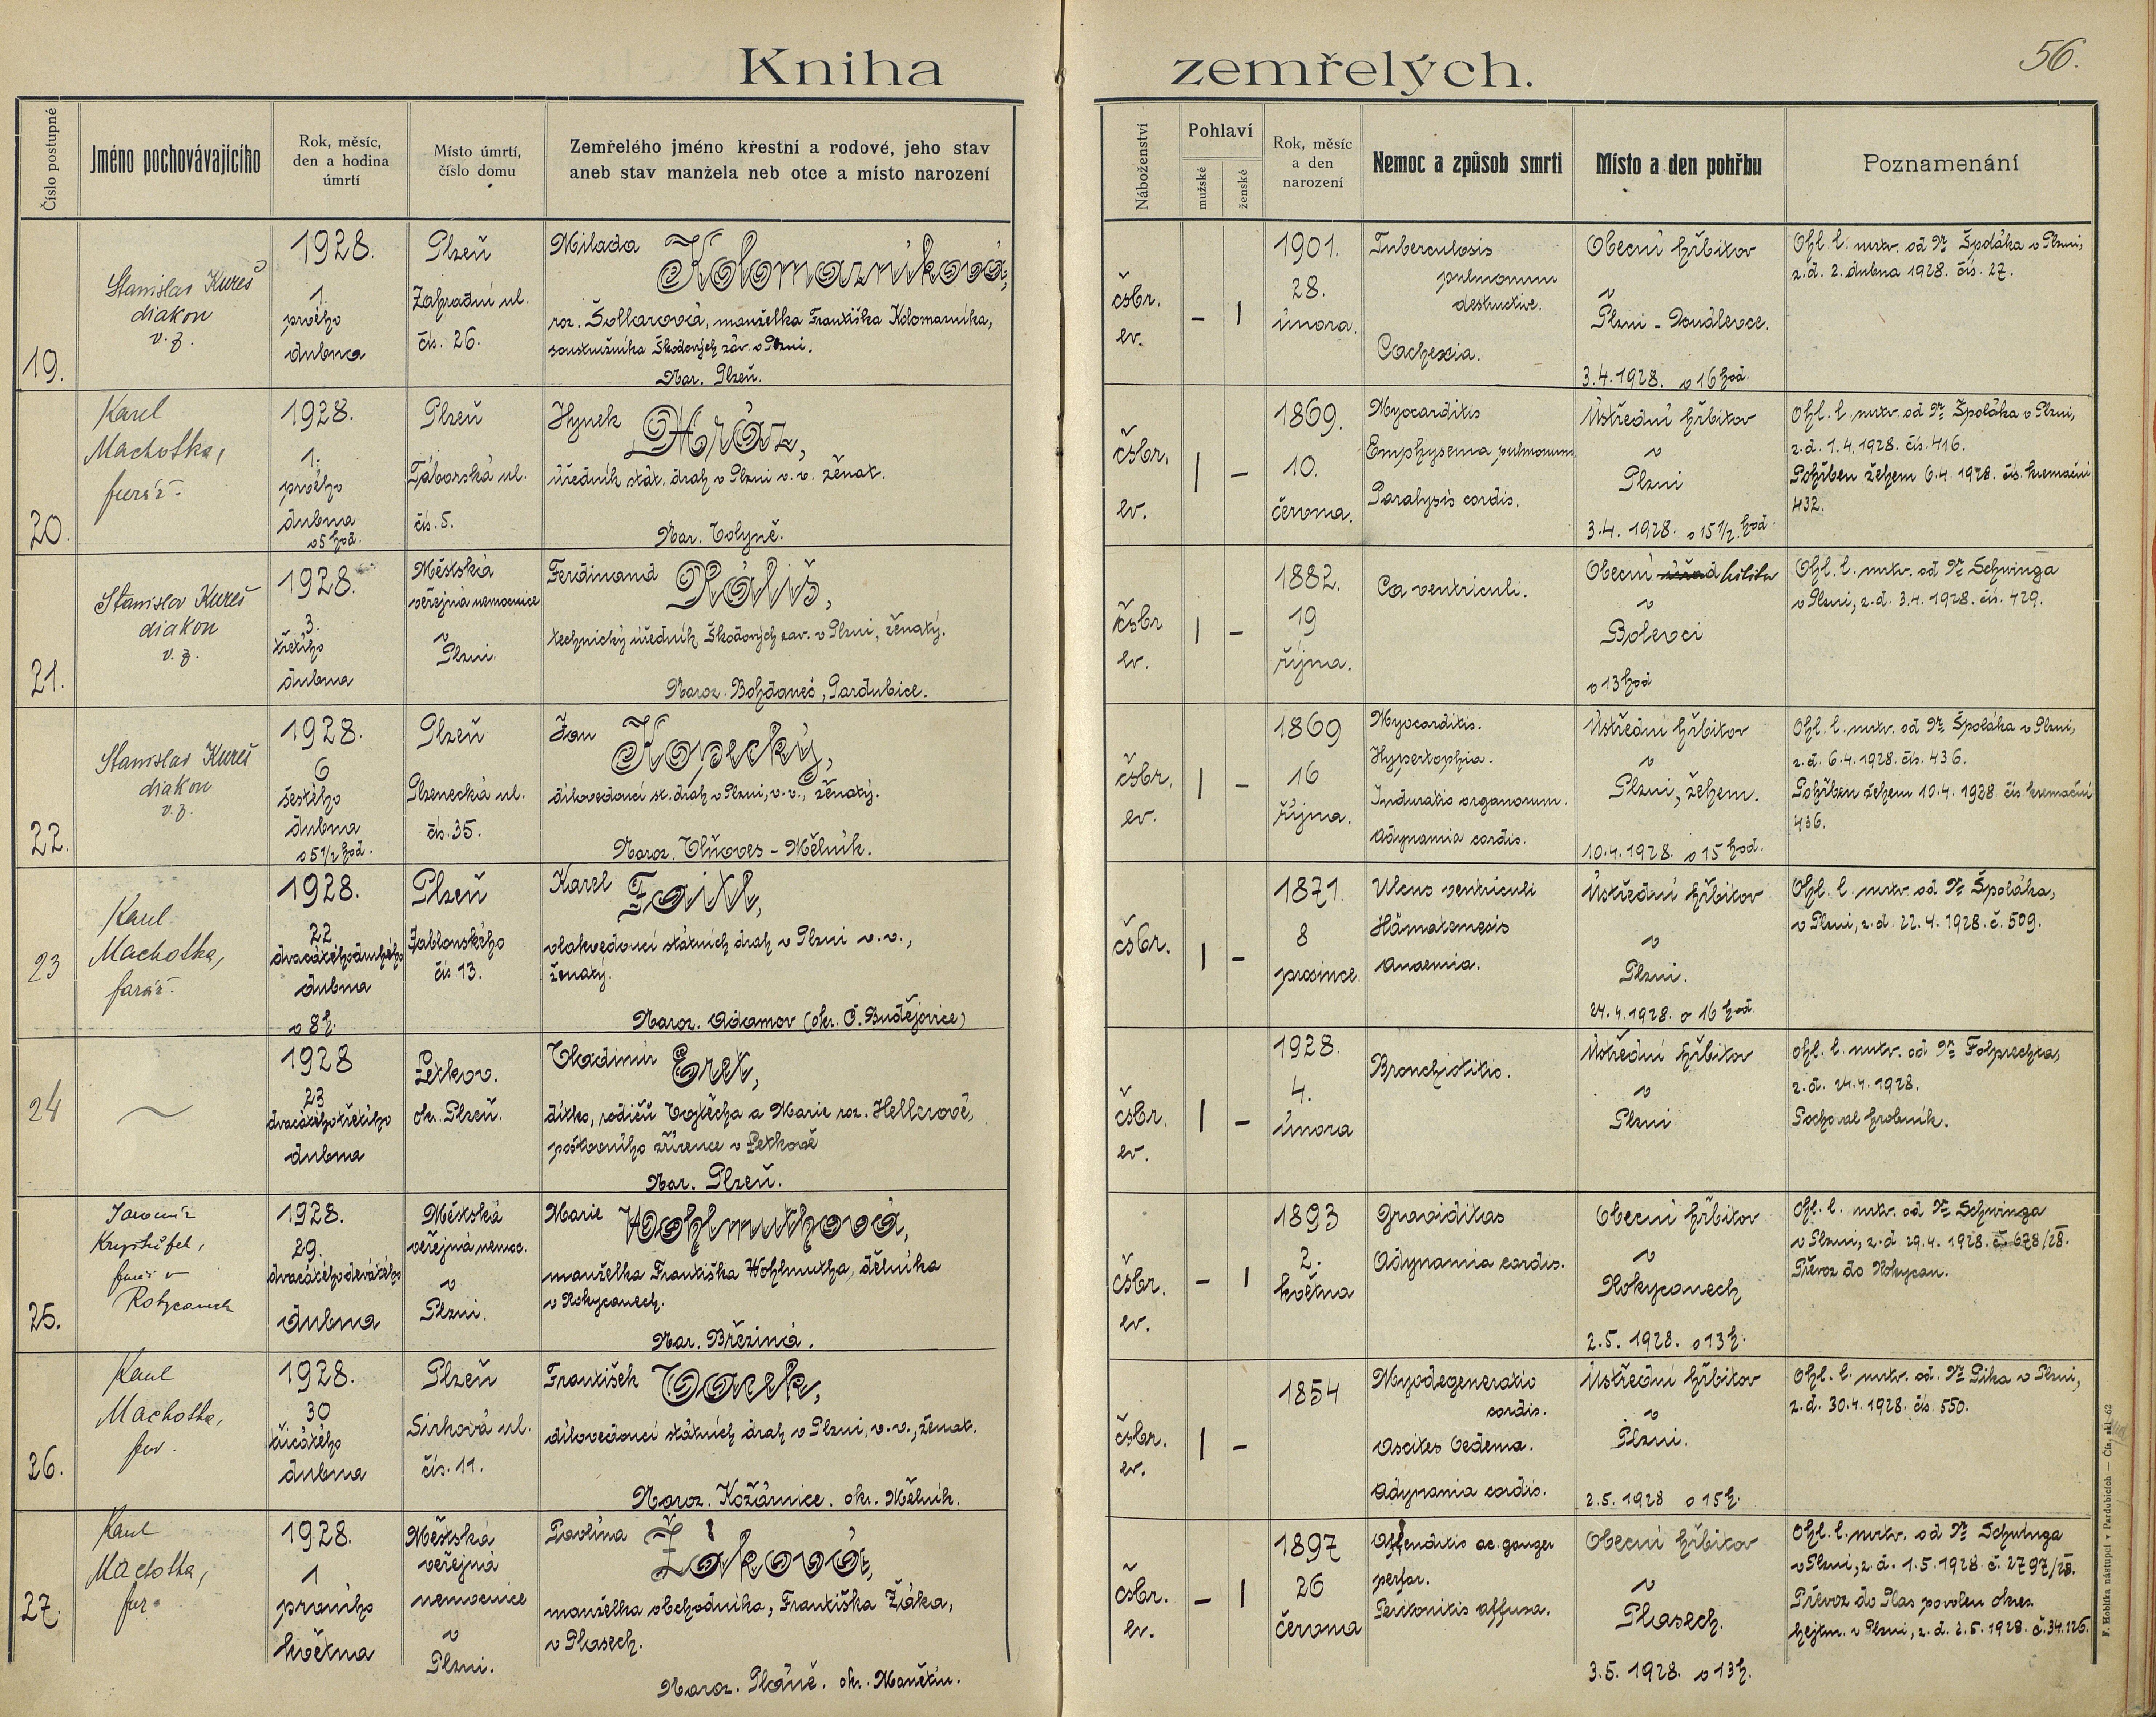 Kniha zemřelých.
56.
Číslo postupné
Jméno pochovávajícího
Rok, měsíc,
den a hodina
úmrtí
Místo úmrtí,
číslo domu
Zemřelého jméno křestní a rodové, jeho stav
aneb stav manžela neb otce a místo narození
Náboženství
Pohlaví
mužské
ženské
Rok, měsíc
a den
narození
Nemoc a způsob smrti
Místo a den pohřbu
Poznamenání
19.
Stanislav Kureš
diakon
v. z.
1928.
1.
prvého
dubna
Plzeň
Zahradní ul.
čís. 26.
Milada Kolomazníková,
roz. Šollarová, manželka Františka Kolomazníka,
soustružníka Škodových záv. v Plzni.
Nar. Plzeň.
čsbr.
ev.
– 1
1901.
28.
února.
Tuberculosis
pulmonum
destructive.
Cachexia.
Obecní hřbitov
v
Plzni - Doudlevce.
3.4.1928. o 16 hod.
Ohl. l. mrtv. od Dr. Špoláka v Plzni,
z.d. 2. dubna 1928. čís. 27.
20.
Karel
Machotka,
farář.
1928.
1.
prvého
dubna
o 5 hod.
Plzeň
Táborská ul.
čís. 5.
Hynek Mráz,
úředník stát. drah v Plzni v. v. ženat.
Nar. Volyně.
čsbr.
ev.
1 –
1869.
10.
června.
Myocarditis
Emphysema pulmonum.
Paralysis cordis.
Ústřední hřbitov
v
Plzni
3.4. 1928. o 15 1/2. hod.
Ohl. l. mrtv. od Dr. Špoláka v Plzni,
z.d. 1.4.1928. čís. 416.
Pohřben žehem 6.4.1928. čís. kremační
432.
21.
Stanislav Kureš
diakon
v. z.
1928.
3.
třetího
dubna
Městská
veřejná nemocnice
v
Plzni.
Ferdinand Rališ,
technický úředník Škodových zav. v Plzni, ženatý.
Naroz. Bohdaneč, Pardubice.
čsbr
ev.
1 –
1882.
19
října.
Ca ventriculi.
Obecní hřbitov
v
Bolevci
o 13 hod
Ohl. l. mrtv. od Dr. Schwinga
v Plzni, z.d. 3.4. 1928. čís. 429.
22.
Stanislav Kureš
diakon
v. z.
1928.
6
šestého
dubna
o 5 1/2 hod.
Plzeň
Plzenecká ul.
čís. 35.
Jan Kopecký,
dílovedoucí st. drah v Plzni, v. v., ženatý.
Naroz. Vliňoves - Mělník.
čsbr.
ev.
1 –
1869
16
října.
Myocarditis.
Hypertophia.
Induratio organorum.
Adynamia cordis.
Ústřední hřbitov
v
Plzni, žehem.
10.4.1928. o 15 hod.
Ohl. l. mrtv. od Dr. Špoláka v Plzni,
z.d. 6.4.1928. čís. 436.
Pohřben žehem 10.4. 1928. čís kremační
436.
23
Karel
Machotka,
farář.
1928.
22
dvacátéhodruhého
dubna
o 8 h.
Plzeň
Jablonského
čís 13.
Karel Faitl,
vlakvedoucí státních drah v Plzni v. v.,
ženatý.
Naroz. Adamov (okr. Č. Budějovice)
čsbr.
1 –
1871.
8
prosince.
Ulcus ventriculi
Hämatemesis
Anaemia.
Ústřední hřbitov
v
Plzni.
24.4.1928. o 16 hod.
Ohl. l. mrtv. od Dr. Špoláka,
v Plzni, z.d. 22.4. 1928. č. 509.
24
1928
23
dvacátéhotřetího
dubna
Letkov.
okr. Plzeň.
Vladimír Eret,
dítko, rodičů Vojtěcha a Marie roz. Hellerové,
poštovního zřízence v Letkově
Nar. Plzeň.
čsbr.
ev.
1 –
1928.
4.
února
Bronchiolitis.
Ústřední hřbitov
v
Plzni
Ohl. l. mrtv. od Dr. Folprechta,
z.d. 24.4. 1928.
Pochoval hrobník.
25.
Jaromír
Kryštůfek,
farář v
Rokycanech
1928.
29.
dvacátéhodevátého
dubna
Městská
veřejná nemoc.
v
Plzni.
Marie Wohlmuthová,
manželka Františka Wohlmutha, dělníka
v Rokycanech.
Nar. Březina.
čsbr.
ev.
– 1
1893
2.
května
Graviditas
Adynamia cordis.
Obecní hřbitov
v
Rokycanech
2.5. 1928. o 13 h.
Ohl. l. mrtv. od Dr. Schwinga
v Plzni, z.d 29.4. 1928. č. 678/28.
Převoz do Rokycan.
26.
Karel
Machotka,
far.
1928.
30
třicátého
dubna
Plzeň
Sirková ul.
čís. 11.
František Vacek,
dílovedoucí státních drah v Plzni, v. v., ženat.
Naroz. Kožárnice. okr. Mělník.
čsbr.
ev.
1 –
1854
Myodegeneratio
cordis.
Ascites Oedema.
Adynamia cordis.
Ústřední hřbitov
v
Plzni.
2.5. 1928 o 15 h.
Ohl. l. mrtv. od. Dr. Pika v Plzni,
z.d. 30.4. 1928. čís. 550.
27.
Karel
Machotka,
far.
1928.
1
prvního
května
Městská
veřejná
nemocnice
v
Plzni.
Pavlína Žáková,
manželka obchodníka, Františka Žáka,
v Plasech.
Naroz. Pláně. okr. Manětín.
čsbr.
ev.
– 1
1897
26
června
Appenditis ac. ganger
perfor.
Peritonitis affusa.
Obecní hřbitov
v
Plasech.
3.5. 1928. o 13 h.
Ohl. l. mrtv. od Dr. Schwinga
v Plzni, z.d. 1.5.1928. č. 2797/28.
Převoz do Plas povolen okres.
hejtm. v Plzni, z.d. 2.5. 1928. č. 34.126.
F. Hoblíka nástupci v Pardubicích — Čís. skl. 62